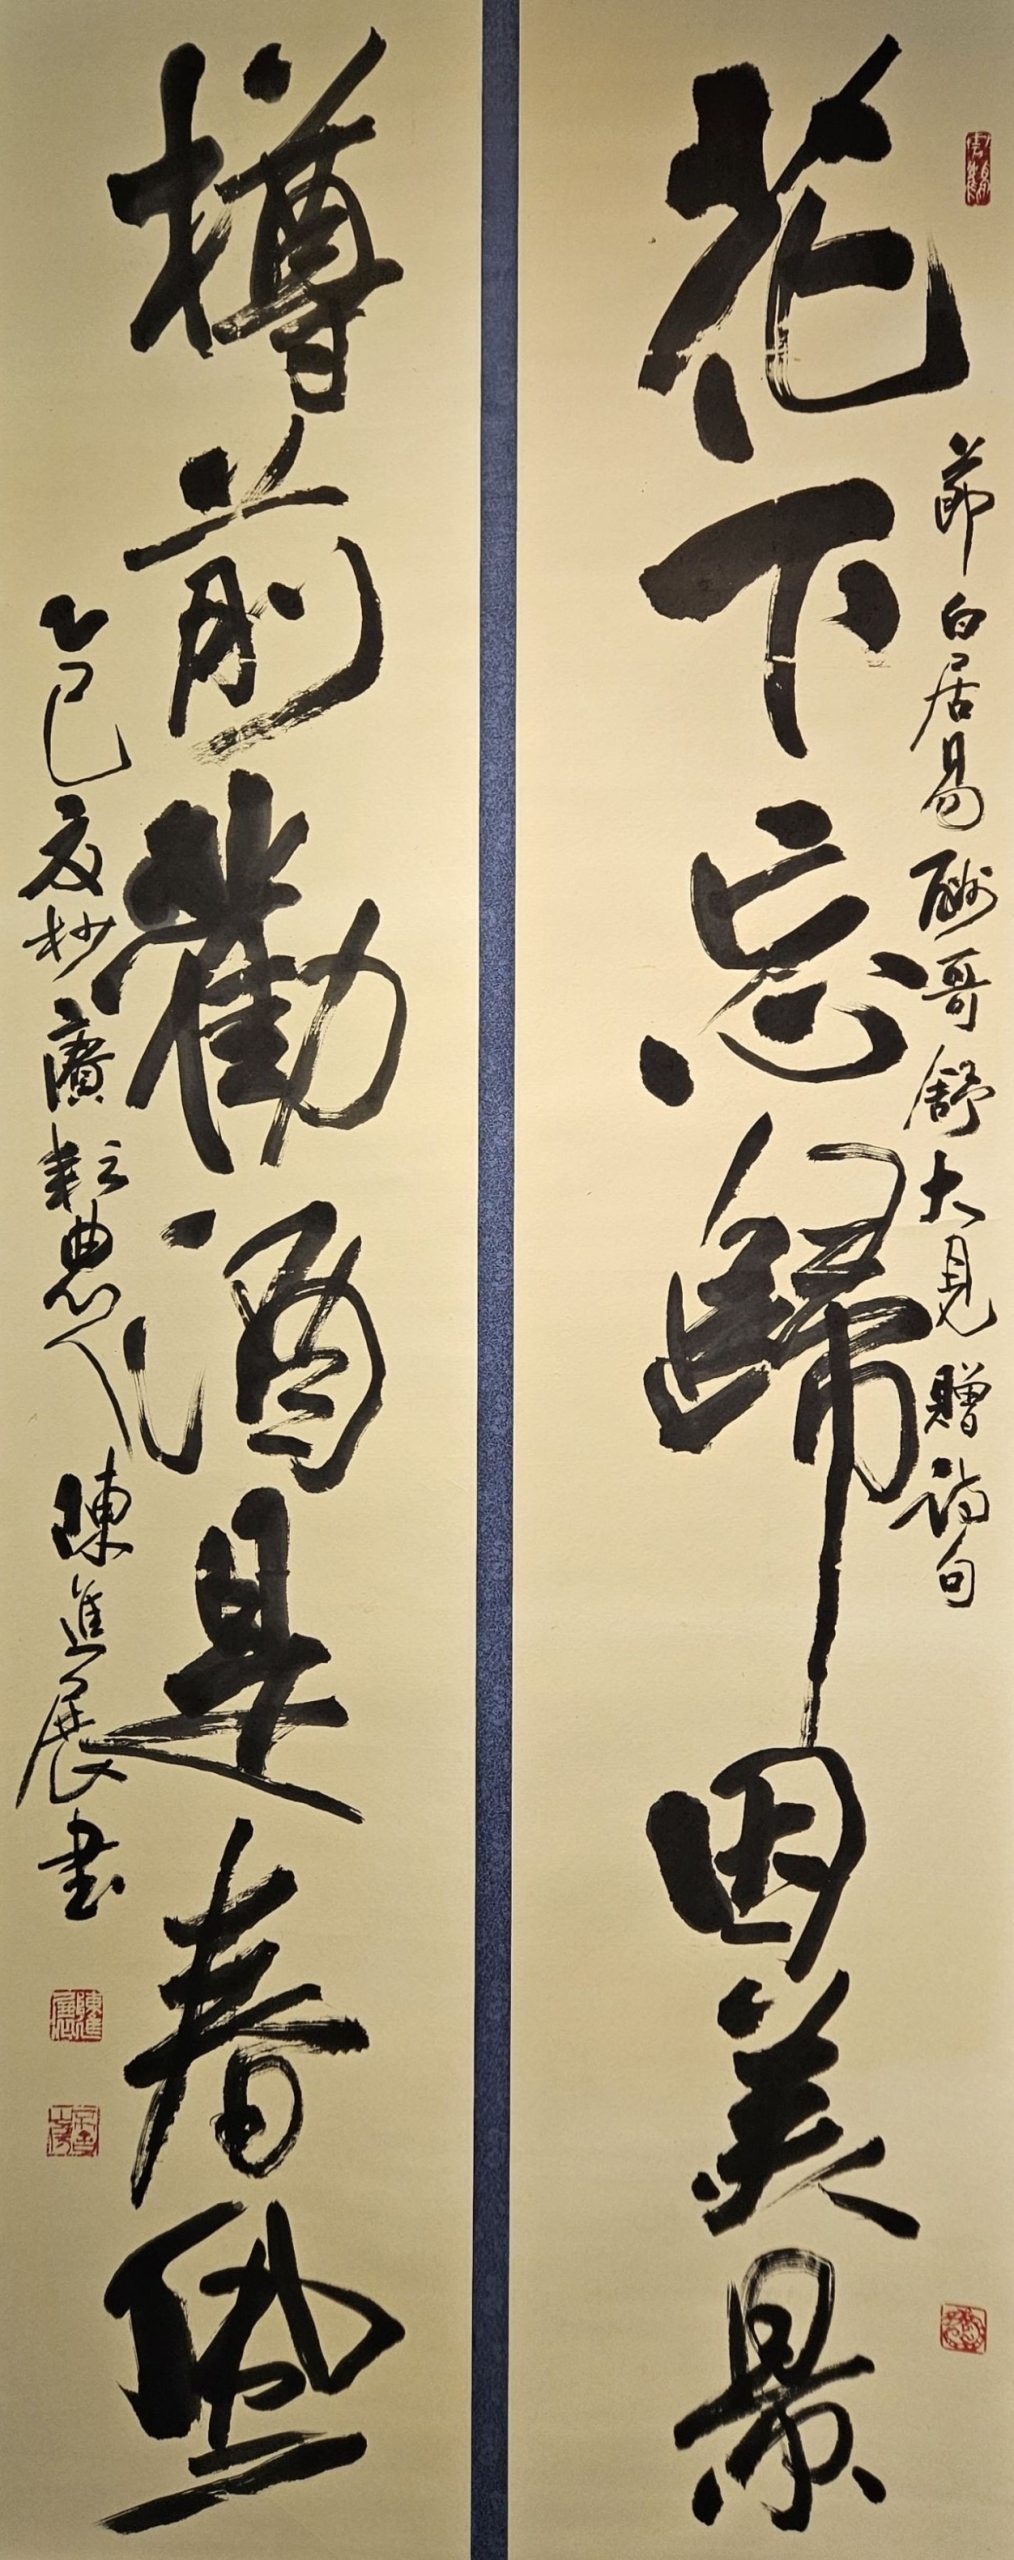 花下忘歸因美景
節白居易酬哥舒大見贈詩句
樽前勸酒是春風
乙巳夏杪廣耘典人
陳進展書